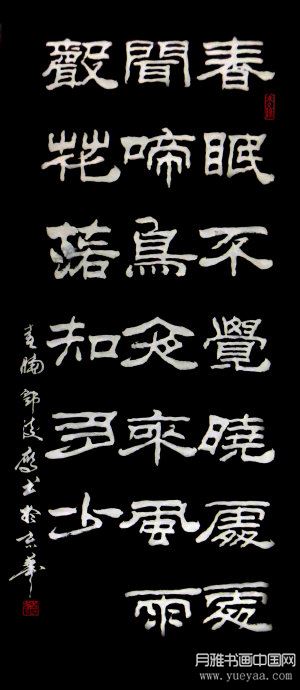 春眠不覺曉處處
聞啼鳥夜來風雨
聲花落知多少
春曉 郭 书於京華
月雅书画中国网
www.yueyaa.com